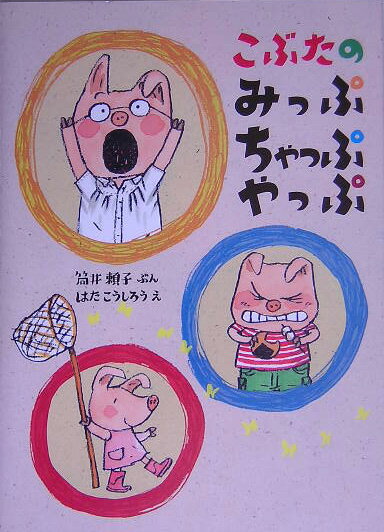 こぶたの
みっぷ
ちゃっぷ
やっぷ
筒井頼子 ぶん
はたこうしろう え